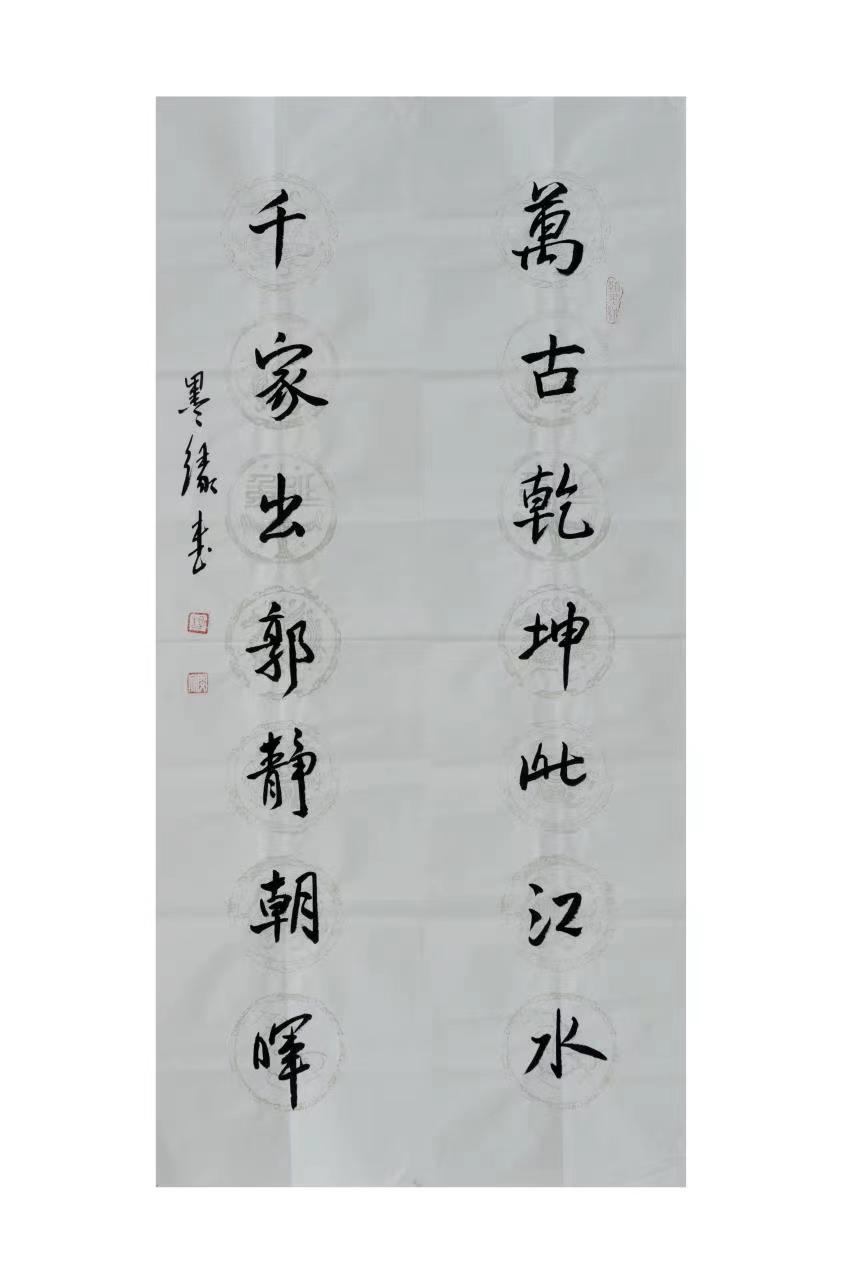 萬古乾坤此江水
千家出郭靜朝暉
墨缘书